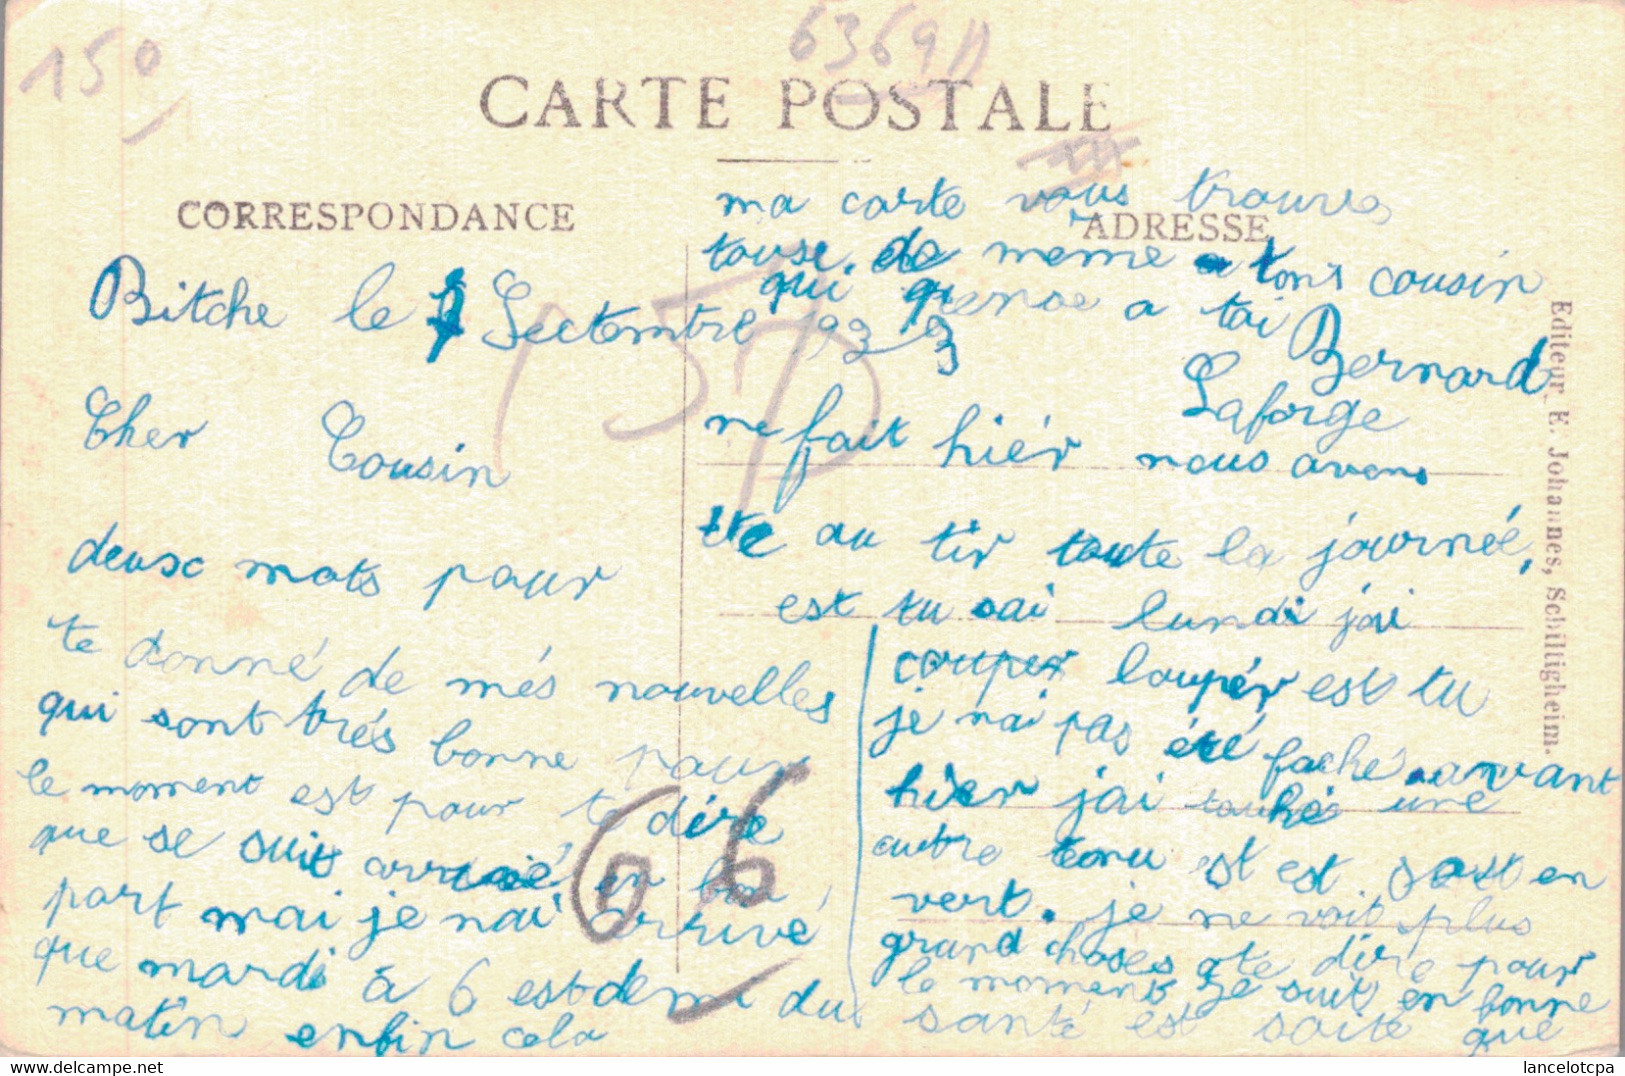 150
6369
CARTE POSTALE
CORRESPONDANCE
ADRESSE
Bitche le 7 Sectembre 1933
Cher Cousin
deux mots pour
te donné de més nouvelles
qui sont trés bonne pour
le moment est pour te dire
que se suit arrivé en bon
port mai je nai arrivé
que mardi à 6 est demi du
matin enfin cela
ne fait hiér nous avons
ete au tir toute la journeé,
est tu sai lundi jai
couper loupér est tu
je nai pas été faché avant
hier jai touché une
autre tenu est est tout en
vert. je ne voit plus
grand choses a te dire pour
le moment Je suit en bonne
santé est soite que
ma carte vous trouve
touse de meme a tons cousin
qui pense a toi Bernard
Laforge
57
66
Editeur E. Johannes, Schiltigheim.
lancelotcpa